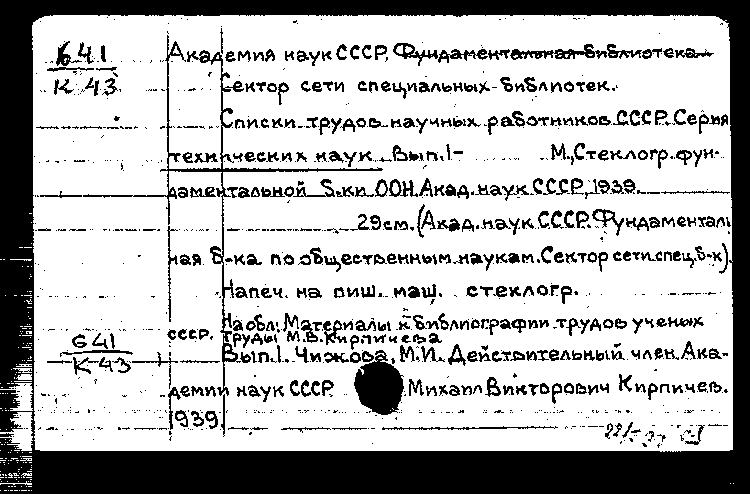 641
К 43
Академия наук СССР, Фундаментальная библиотека.
Сектор сети специальных библиотек.
Списки трудов научных работников СССР. Серия
технических наук. Вып. 1- М., Стеклогр. фун-
даментальной б-ки ООН Акад. наук СССР, 1939.
29см. (Акад. наук СССР. Фундаменталь
ная б-ка по общественным наукам. Сектор сети спец. б-к).
Напеч. на пиш. маш. стеклогр.
На обл.: Материалы к библиографии трудов ученых
СССР. Труды М.В. Кирпичева
641
К 43
Вып. 1. Чижова, М.И. Действительный член Ака-
демии наук СССР Михаил Викторович Кирпичев.
1939.